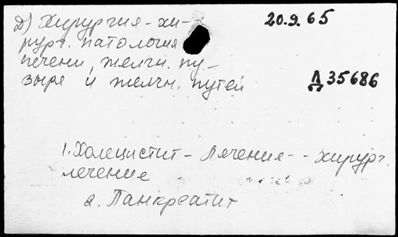 д) Хирургия - хи-
рург. патология
печени, желчн. пу-
зыря и желчн. путей
20.9.65
Д35686
1. Холецистит - Лечение - - хирург.
лечение
2. Панкреатит